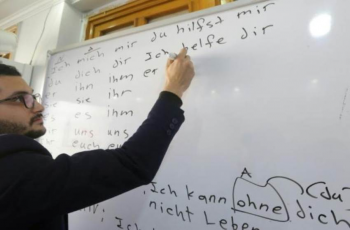 Ich mich mir du hilfst mir
du dich dir Ich helfe dir
er ihn ihm er
sie ihr
es ihm
uns uns
euch
A
Ich kann ohne dich (du
nicht Leben